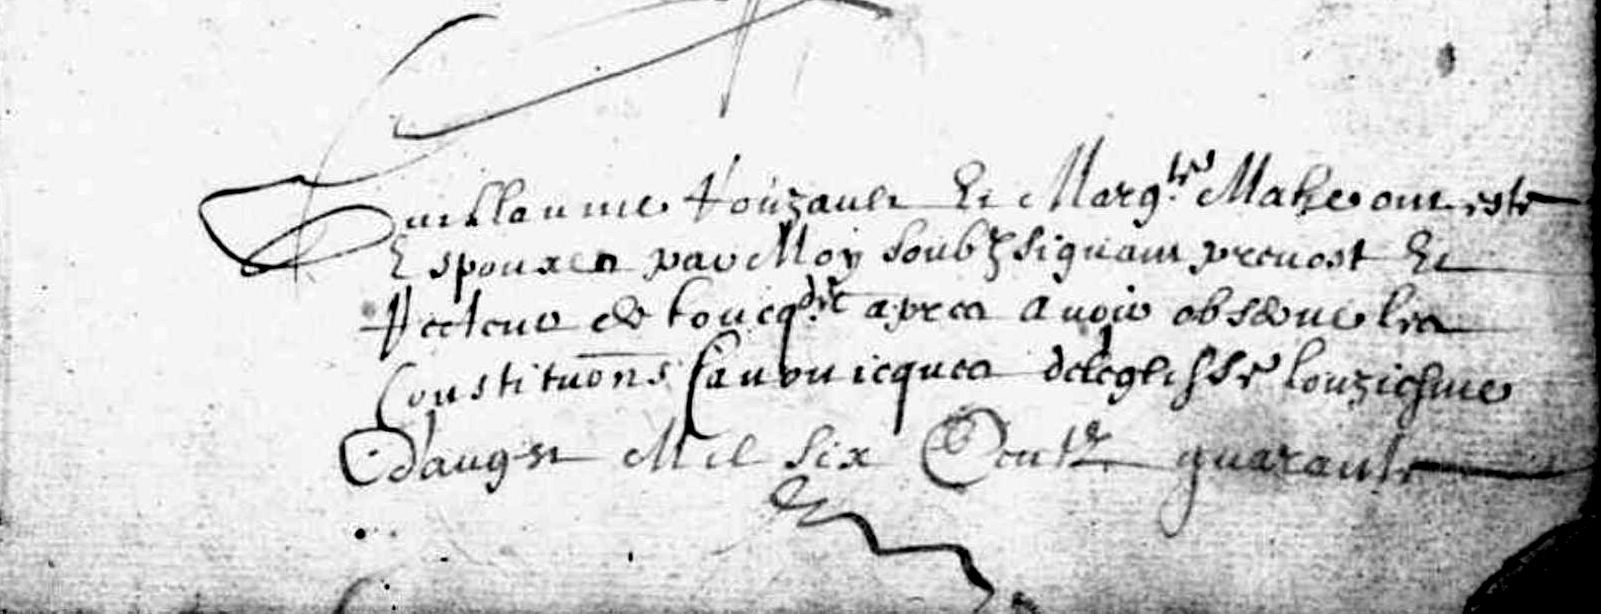 Guillaume Touzault Et Marg.te Mahe ont este
Espouzes par Moy soubz signant prevost Et
Recteur de apres avoir observe les
Constitu͞ons Canonicques de leglisse Lonziesme
D'augst Mil six Centz quarante